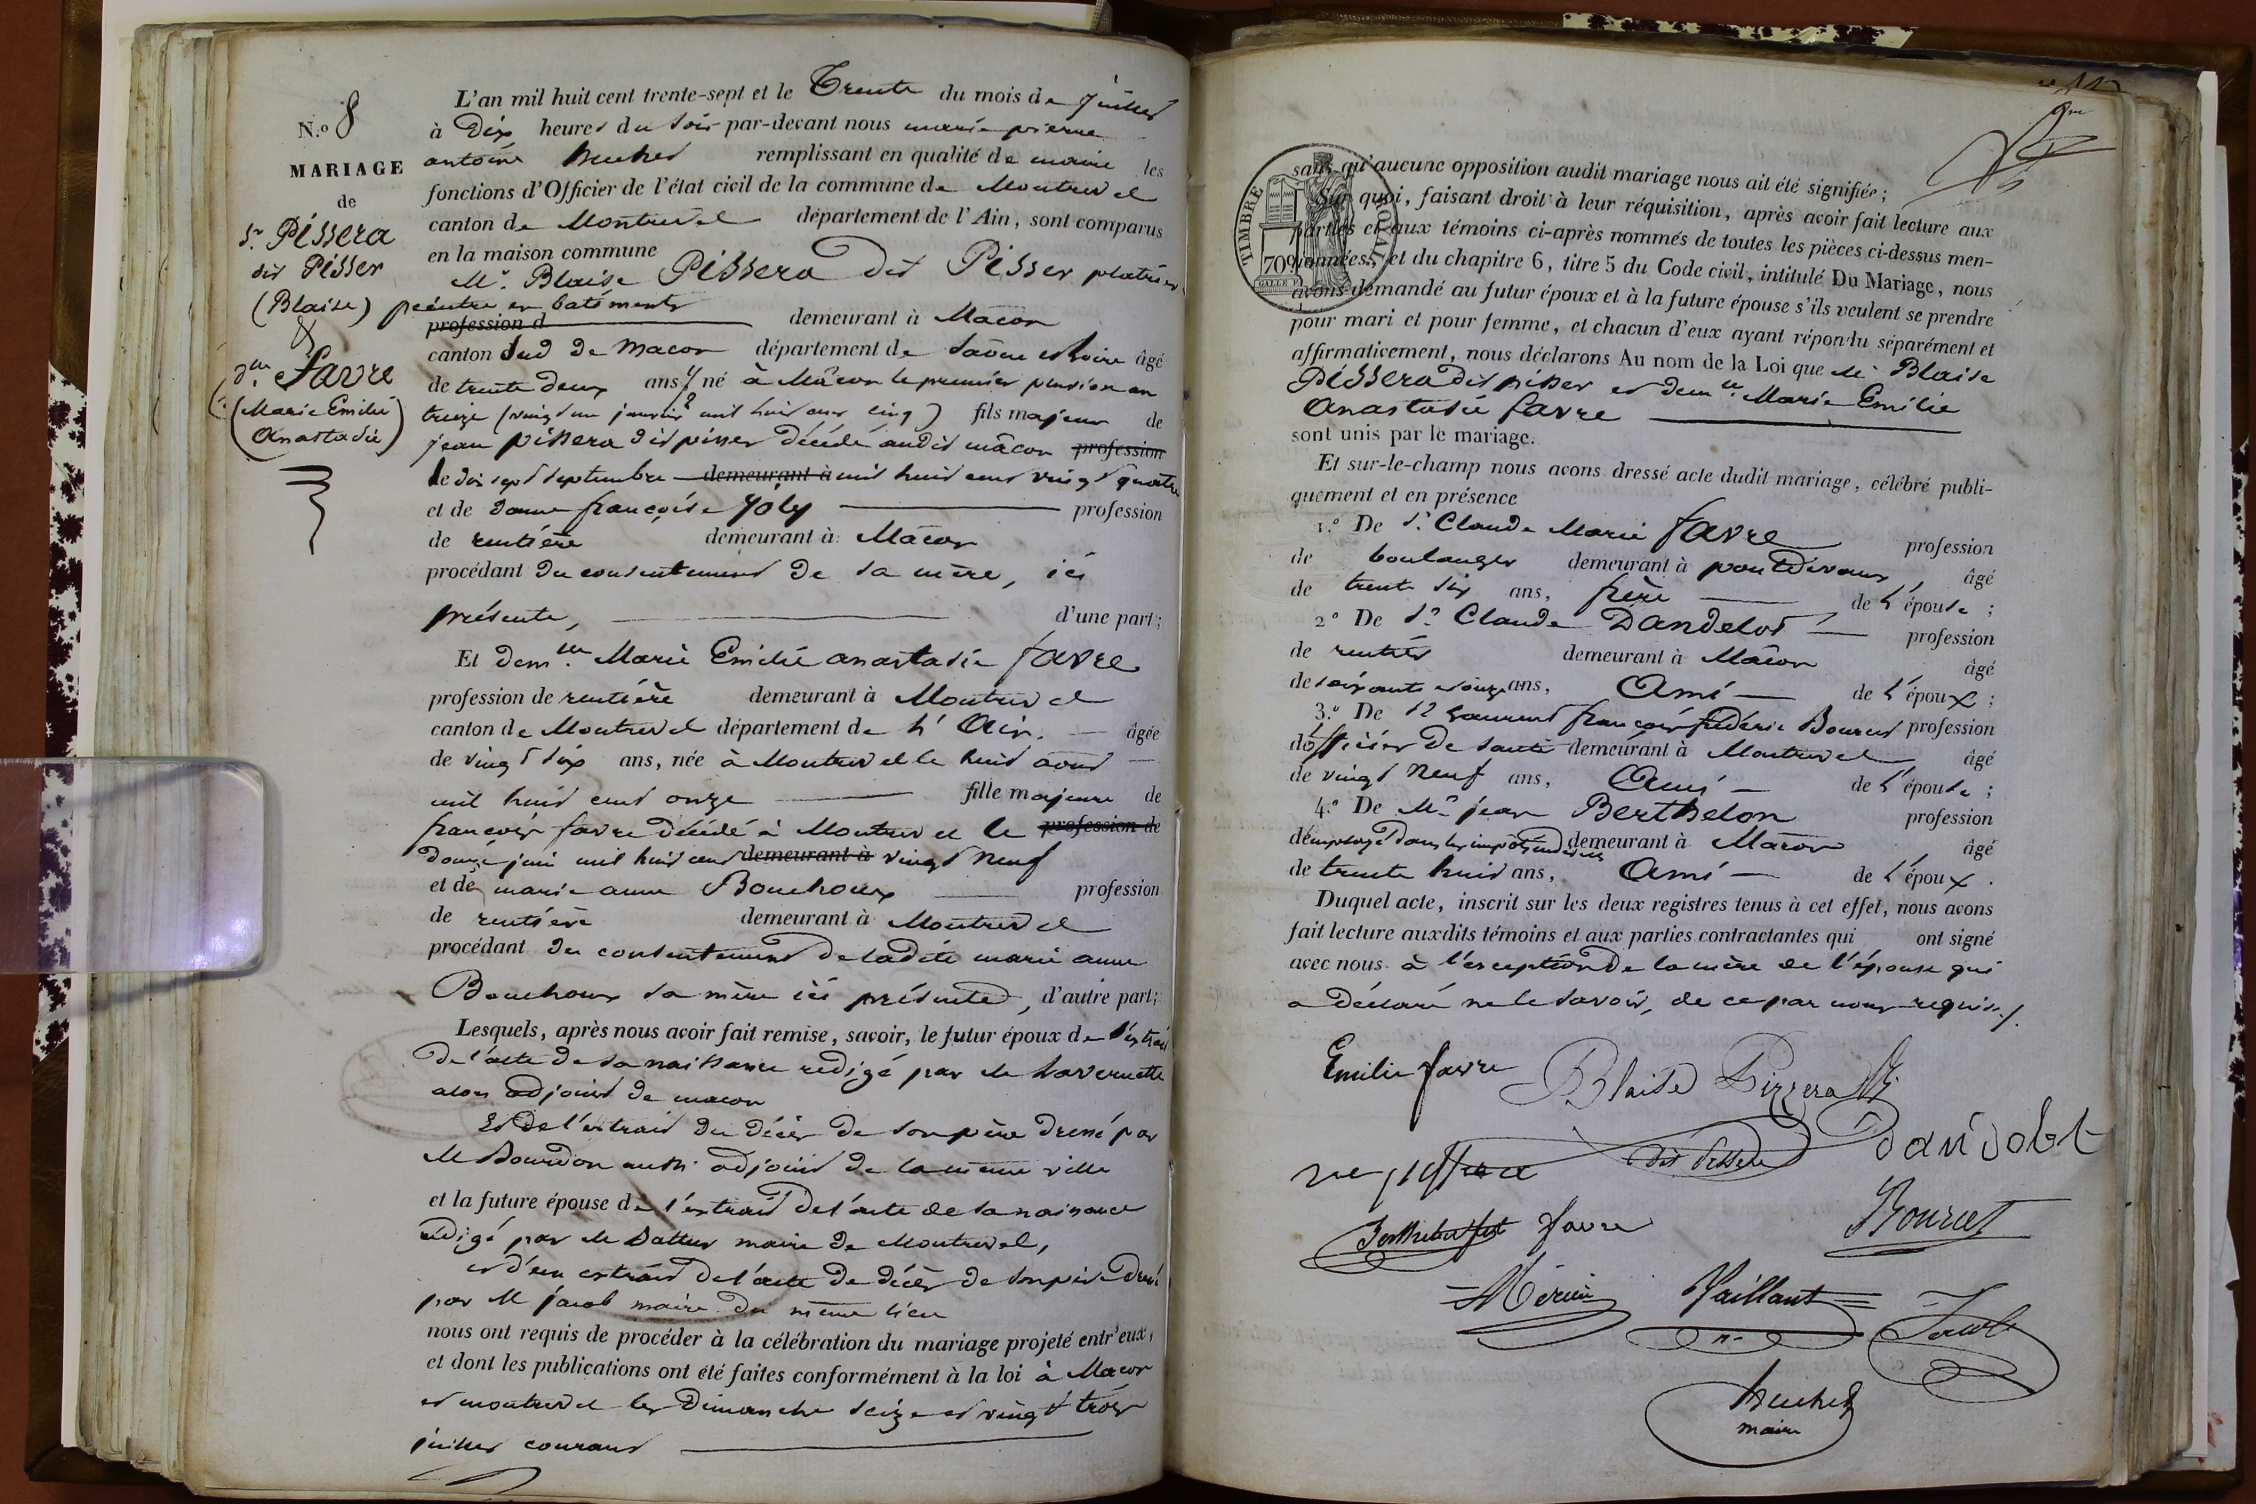 N.º 8
MARIAGE
de
Sr. Pissera
dit Pisser
(Blaise)
&
Dlle. Favre
(Marie Emilie
Anastasie)
L'an mil huit cent trente-sept et le Trente du mois de juillet
à Dix heures du soir par-devant nous marie pierre
antoine huchet remplissant en qualité de maire les
fonctions d'Officier de l'état civil de la commune de Montrevel
canton de Montrevel département de l'Ain, sont comparus
en la maison commune
Mr. Blaise Pissera dit Pisser platrier
peintre en batiments
profession d demeurant à Macon
canton sud de Macon département de Saone et loire âgé
de trente deux ans né à Mâcon le premier pluviose an
treize (vingt un janvier mil huit cent cinq) fils majeur de
jean pissera dit pisser décédé audit mâcon profession
le dix sept septembre demeurant à mil huit cent vingt quatre
et de dame françoise Joly profession
de rentière demeurant à Mâcon
procédant du consentement de sa mère, ici
présente, d'une part;
Et demlle. Marie Emilie anastasie favre
profession de rentière demeurant à Montrevel
canton de Montrevel département de L'Ain. âgée
de vingt six ans, née à Montrevel le huit aout
mil huit cent onze fille majeure de
françois favre décédé à Montrevel le profession de
douze juin mil huit cent demeurant à vingt neuf
et de marie anne Bouchoux profession
de rentière demeurant à Montrevel
procédant du consentement de ladite marie anne
Bouchoux sa mère ici présente, d'autre part;
Lesquels, après nous avoir fait remise, savoir, le futur époux de l'extrait
de l'acte de sa naissance rédigé par M. Lavernette
alors adjoint de macon
Et de l'extrait du décès de son père dressé par
M Bourdon aussi adjoint de la même ville
et la future épouse de l'extrait de l'acte de sa naissance
rédigé par M maire de Montrevel,
et d'un extrait de l'acte de décès de son père dressé
par M jacob maire du même lieu
nous ont requis de procéder à la célébration du mariage projeté entr'eux,
et dont les publications ont été faites conformément à la loi à Macon
et montrevel les Dimanche seize et vingt trois
juillet courant
TIMBRE ROYAL
70c
sans qu'aucune opposition audit mariage nous ait été signifiée;
Sur quoi, faisant droit à leur réquisition, après avoir fait lecture aux
parties et aux témoins ci-après nommés de toutes les pièces ci-dessus men-
tionnées, et du chapitre 6, titre 5 du Code civil, intitulé Du Mariage, nous
avons demandé au futur époux et à la future épouse s'ils veulent se prendre
pour mari et pour femme, et chacun d'eux ayant répondu séparément et
affirmativement, nous déclarons Au nom de la Loi que Mr Blaise
Pissera dit pisser et demlle. Marie Emilie
Anastasie favre
sont unis par le mariage.
Et sur-le-champ nous avons dressé acte dudit mariage, célébré publi-
quement et en présence
1.º De Sr. Claude Marie favre profession
de boulanger demeurant à pontdevaux, âgé
de trente six ans, frère de L'épouse;
2º De Sr. Claude Dandelot profession
de rentier demeurant à Mâcon âgé
de soixante et onze ans, Ami de L'époux;
3.º De Sr Laurent françois frédéric Bourcet profession
d'officier de santé demeurant à Montrevel âgé
de vingt neuf ans, Ami de L'épouse;
4.º De Mr jean Berthelon profession
d'employé dans les impôts indirects demeurant à Macon âgé
de trente huit ans, Ami de L'époux.
Duquel acte, inscrit sur les deux registres tenus à cet effet, nous avons
fait lecture auxdits témoins et aux parties contractantes qui ont signé
avec nous à l'exception de la mère de l'épouse qui
a déclaré ne le savoir, de ce par nous requise./.
Emilie favre Blaise Pizzera
dit Dandelot
favre Bourcet
Mercier Vaillant Jacob
huchet
maire